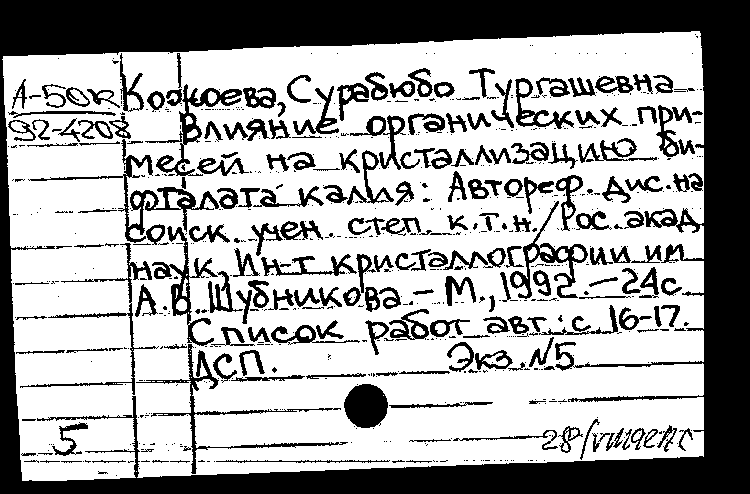 А-50к
92-4208
Кожоева, Сурабюбо Тургашевна
Влияние органических при-
месей на кристаллизацию би-
фталата калия: Автореф. дис. на
соиск. учен. степ. к.т.н. / Рос. акад.
наук, Ин-т кристаллографии им
А.В. Шубникова. – М., 1992. – 24с.
Список работ авт.: с. 16-17.
ДСП. Экз. N5
5
28/